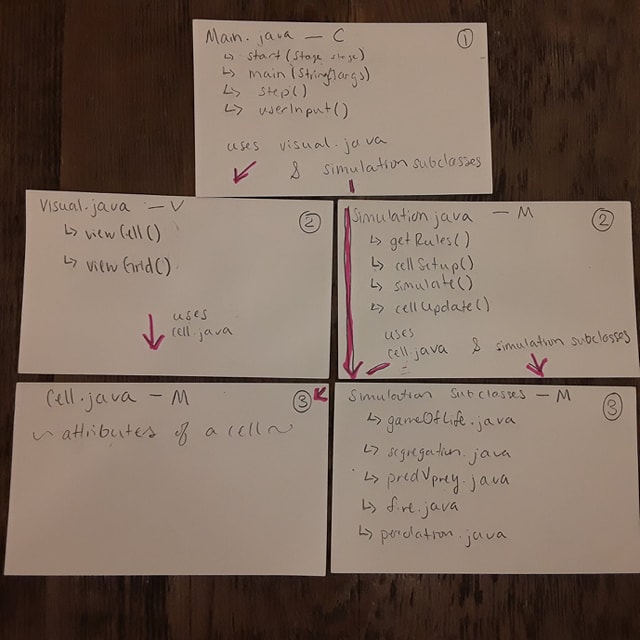 Main.java — C
①
↳ start(Stage stage)
↳ main(String[]args)
↳ step()
↳ userInput()
uses visual.java
& simulation subclasses
Visual.java — V
②
↳ viewCell()
↳ viewGrid()
uses
cell.java
Simulation.java — M
②
↳ getRules()
↳ cellSetup()
↳ simulate()
↳ cellUpdate()
uses
cell.java & simulation subclasses
Cell.java — M
③
~ attributes of a cell ~
Simulation Subclasses — M
③
↳ gameOfLife.java
↳ segregation.java
↳ predVprey.java
↳ fire.java
↳ percolation.java